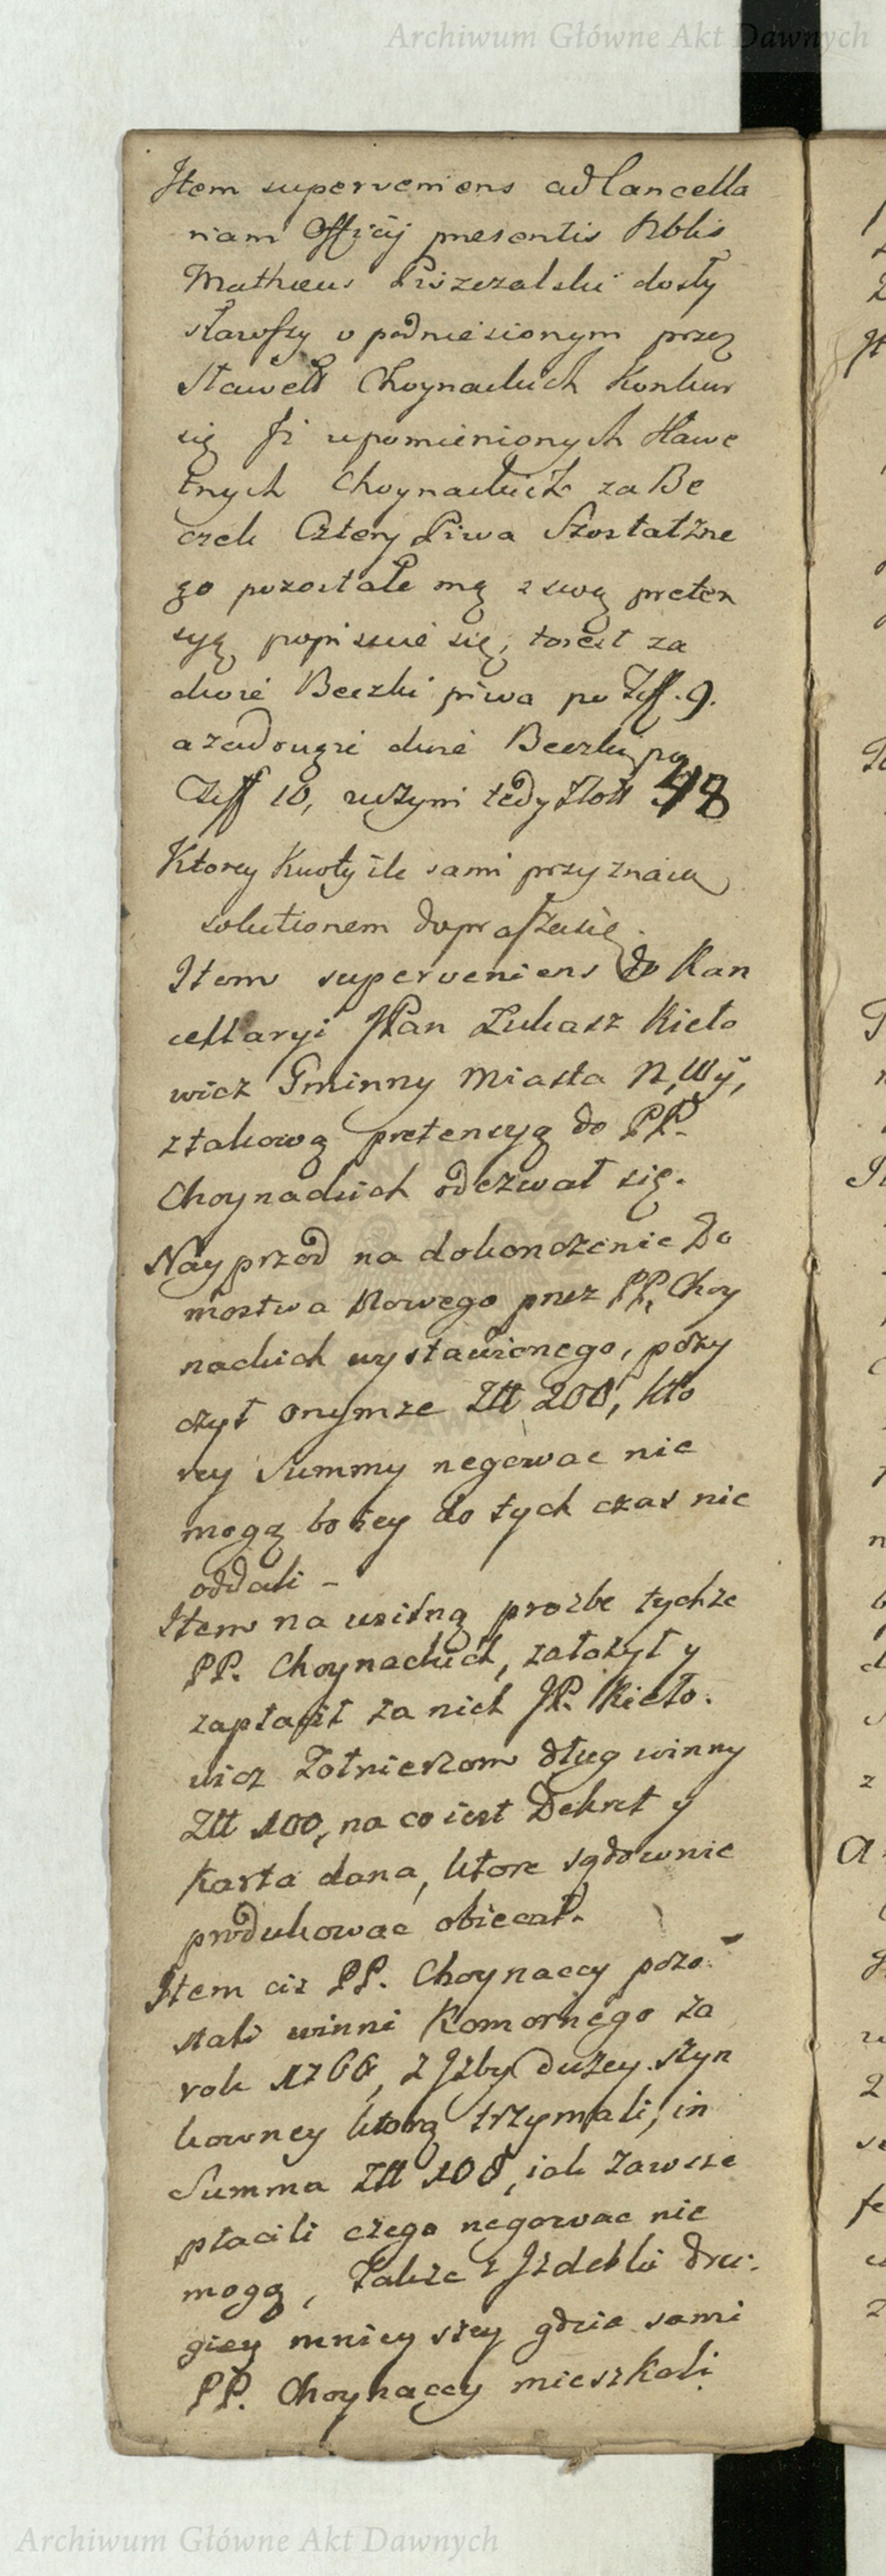 Archiwum Główne Akt Dawnych
Item superveniens ad Cancella
riam Officij presentis Nblis
Mathæus Piszczalski dosły
stawszy o podniesionym przez
Sławetł Choynackich Konkur
się Ji upomienionych Sławe
tnych Choynackich za Be
czek Cztery Piwa Szostatżne
go pozostałe mą z swą preten
syą popisuie się, toiest za
dwoie Beczki piwa po Złł. 9.
a za drugie dwie Beczki po
Złłł 10, uczyni tedy Złotł 48
Ktorey Kwoty ile sami przyznaią
solutionem doprasza się.
Item superveniens do Kan
cellaryi JPan Łukasz Kieło
wicz Gminny Miasta N, Wy,
z takową pretensyą do PP.
Choynackich odezwał się.
Nayprzod na dokonczenie Do
mostwa Nowego przez PP. Choy
nackich wystawionego, poży
czył onymze Złł 200, kto
rey Summy negować nie
mogą bo iey do tych czas nie
oddali –
Item na usilną prozbe tychze
PP. Choynackich, założył y
zapłacił za nich JP. Kieło.
wicz Żołnierzom dług winny
Złł 100, na co iest Dekret y
Karta dana, ktore sądownie
produkowac obiecał.
Item ciz PP. Choynaccy pozo
stali winni Komornego za
rok 1766, z Jzby duzey szyn
kowney ktorą trzymali, in
Summa Złł 108, iak zawsze
płacili czego negowac nie
mogą, Także z Jzdebki dru.
giey mnieyszey gdzie sami
PP. Choynaccy mieszkali
Archiwum Główne Akt Dawnych